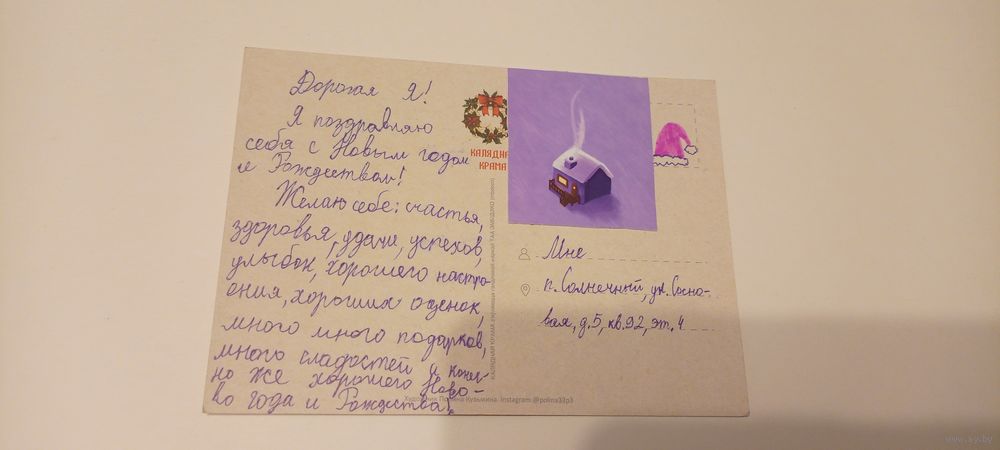 Дорогая Я!
Я поздравляю
себя с Новым годом
и Рождеством!
Желаю себе: счастья,
здоровья, удачи, успехов,
улыбок, хорошего настро-
ения, хороших оценок,
много много подарков,
много сладостей и конеч-
но же хорошего Ново-
во года и Рождества!
КАЛЯДНА
КРАМА
Мне
п. Солнечный, ул. Сосно-
вая, д. 5, кв. 92, эт. 4
Художник Полина Кузьмина. Instagram @polina33p3
www.ay.by